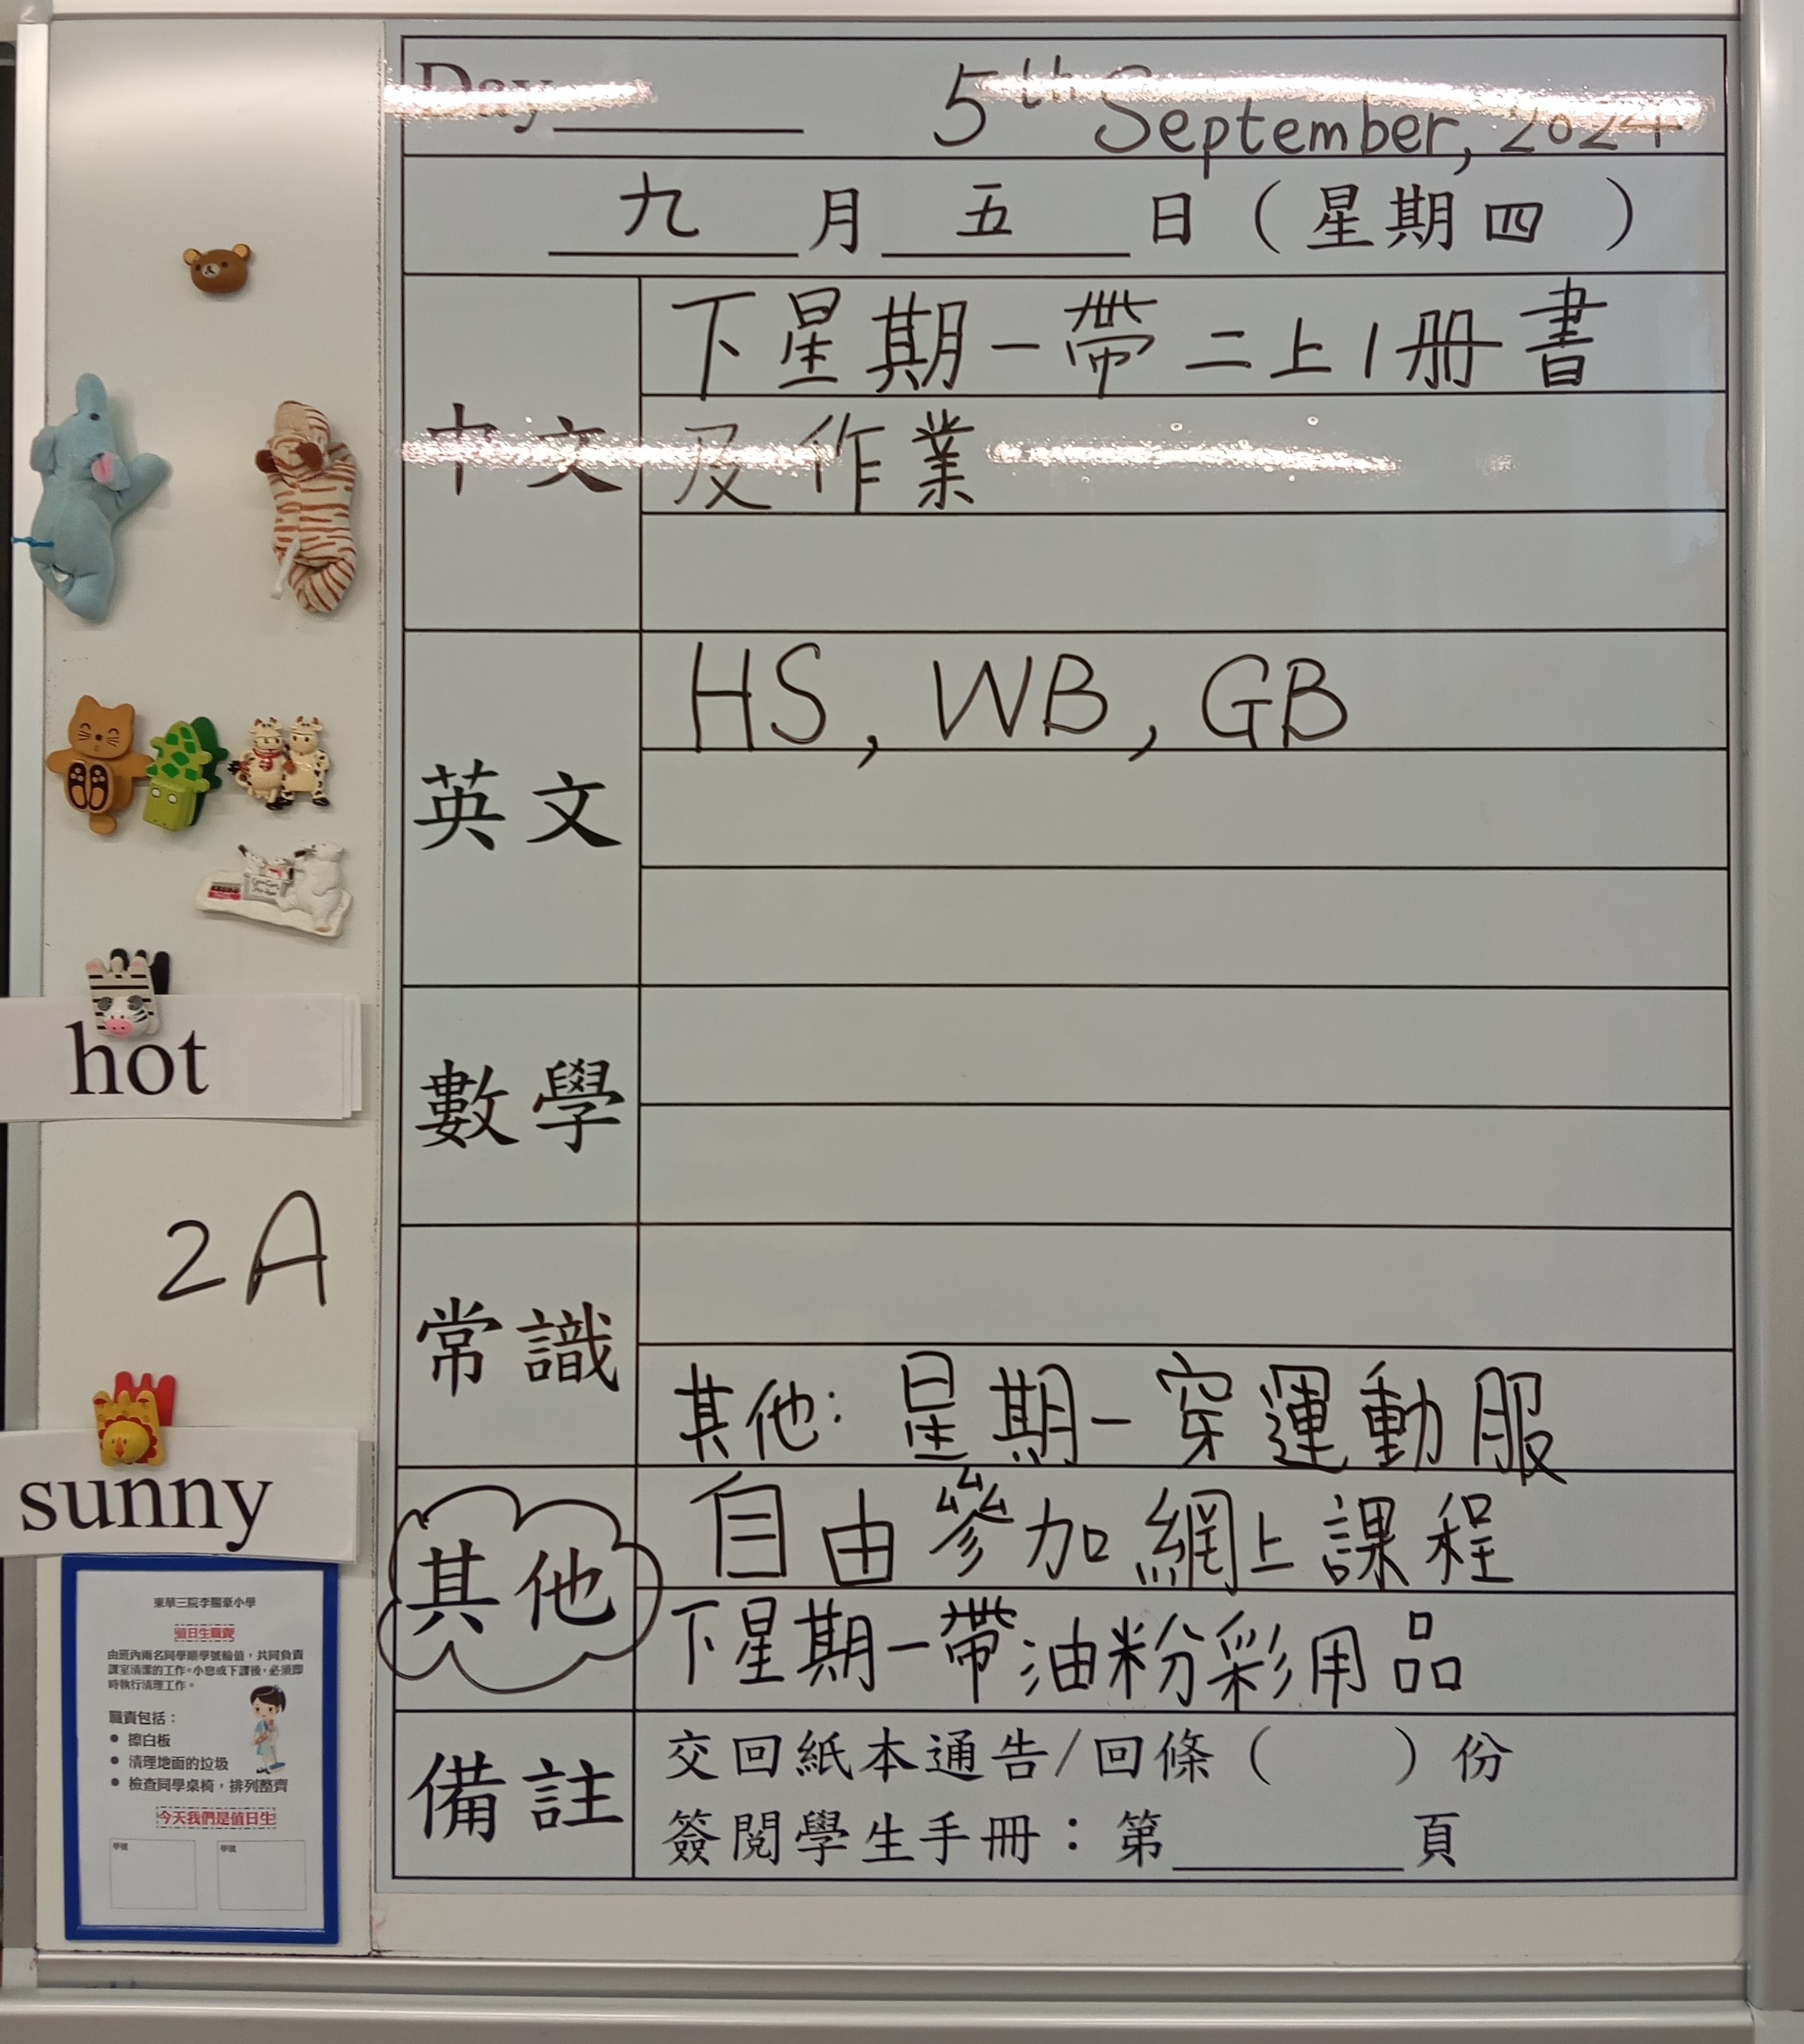 Day
5th September, 2024
九 月 五 日 ( 星期四 )
中文
下星期一帶二上1冊書
及作業
英文
HS, WB, GB
數學
常識
其他: 星期一穿運動服
其他
自由參加網上課程
下星期一帶油粉彩用品
備註
交回紙本通告/回條 ( ) 份
簽閱學生手冊：第 頁
hot
2A
sunny
東華三院李賜豪小學
值日生職責
由班內兩名同學順學號輪值，共同負責
課室清潔的工作。小息或下課後，必須即
時執行清理工作。
職責包括：
● 擦白板
● 清理地面的垃圾
● 檢查同學桌椅，排列整齊
今天我們是值日生
學號
學號